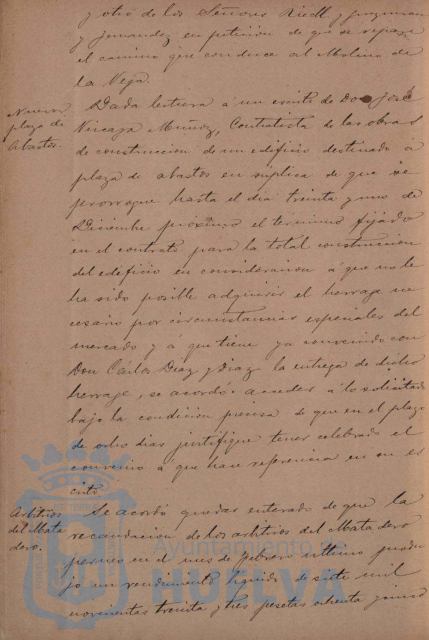 y otro de los Señores Riedl y Guzman
y Fernandez en peticion de que se repase
el camino que conduce al Molino de
la Vega.
Nueva plaza de Abastos.
Dada lectura á un escrito de Don José
Vizcaya Muñoz, Contratista de las obras
de construccion de un edificio destinado á
plaza de abastos en súplica de que se
prorrogue hasta el dia treinta y uno de
Diciembre proximo el termino fijado
en el contrato para la total construccion
del edificio en consideracion á que no le
ha sido posible adquirir el herraje ne
cesario por circunstancias especiales del
mercado y á que tiene ya convenido con
Don Cárlos Diaz y Diaz la entrega de dicho
herraje, se acordó acceder á lo solicitado
bajo la condicion precisa de que en el plazo
de ocho dias justifique tener celebrado el
convenio á que hace referencia en su es
crito.
Arbitrios del Mata dero.
Se acordó quedar enterado de que la
recaudacion de los arbitrios del Matadero
en el mes de febrero ultimo produ
jo un rendimiento liquido de siete mil
novecientas treinta y tres pesetas ochenta y
Ayuntamiento de
HUELVA